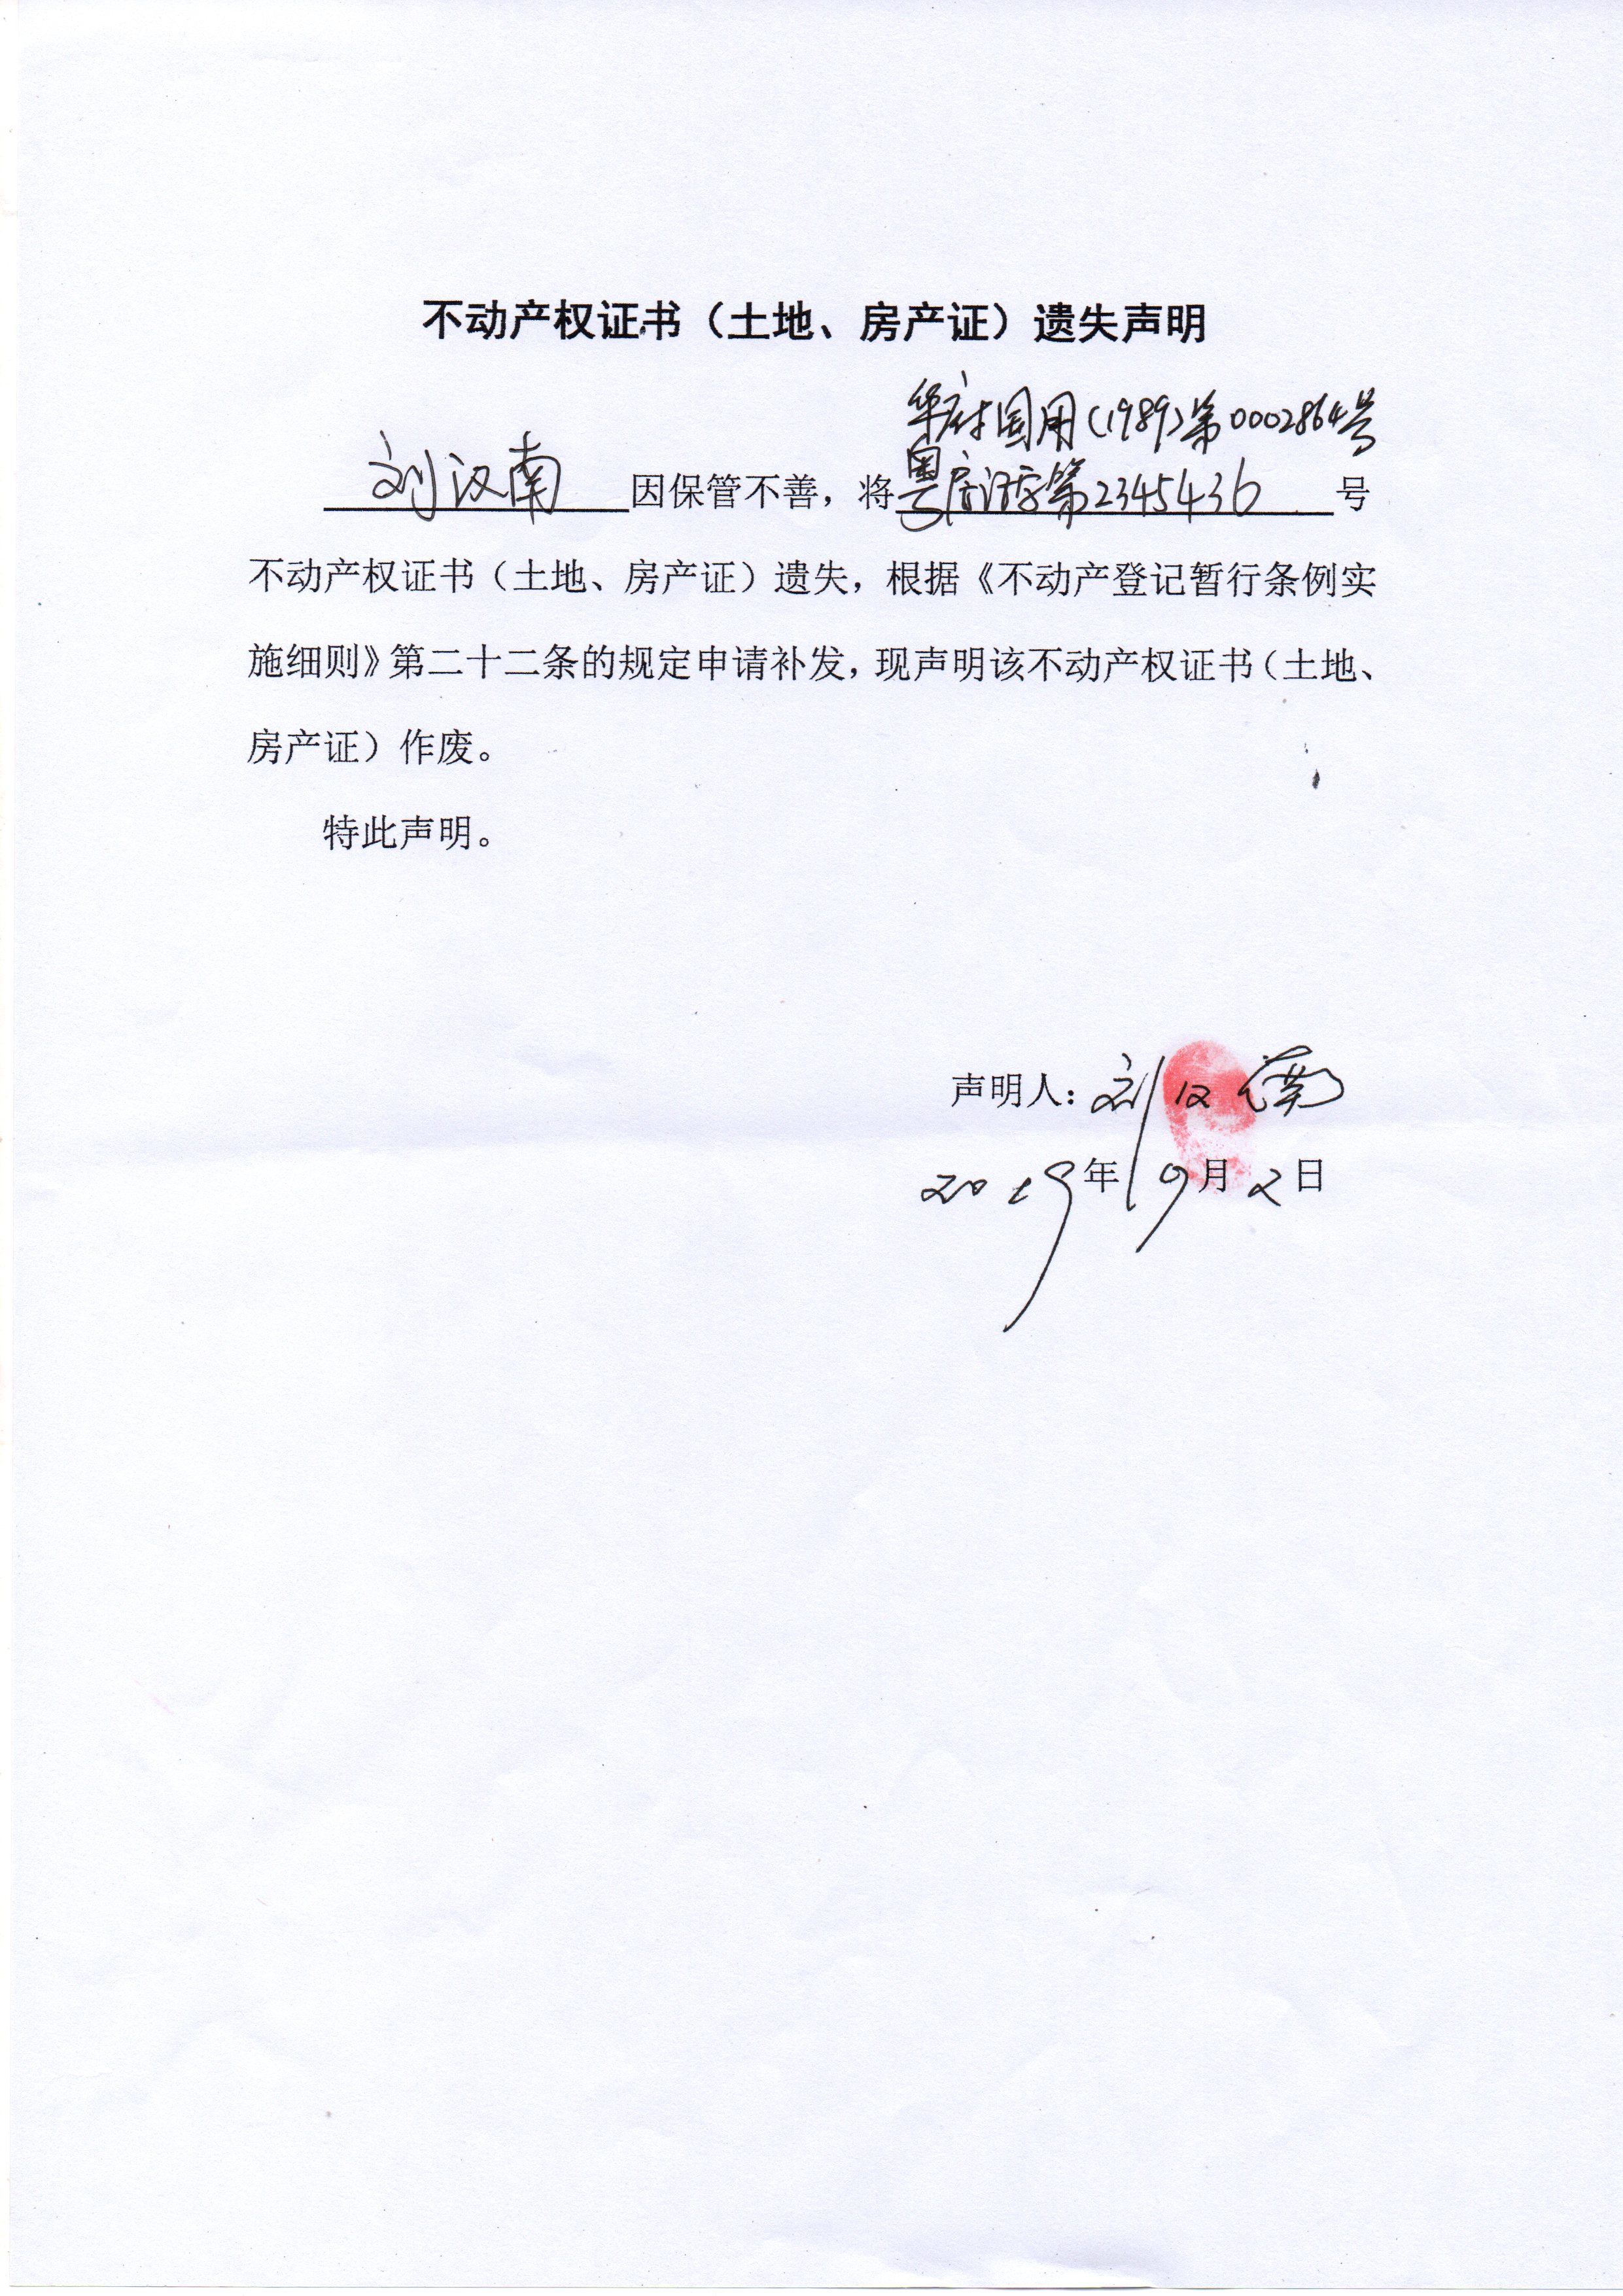 不动产权证书（土地、房产证）遗失声明
华府国用(1989)第0002864号
刘汉南因保管不善，将粤房证字第2345436号
不动产权证书（土地、房产证）遗失，根据《不动产登记暂行条例实
施细则》第二十二条的规定申请补发，现声明该不动产权证书（土地、
房产证）作废。
特此声明。
声明人：刘汉南
2019年9月2日